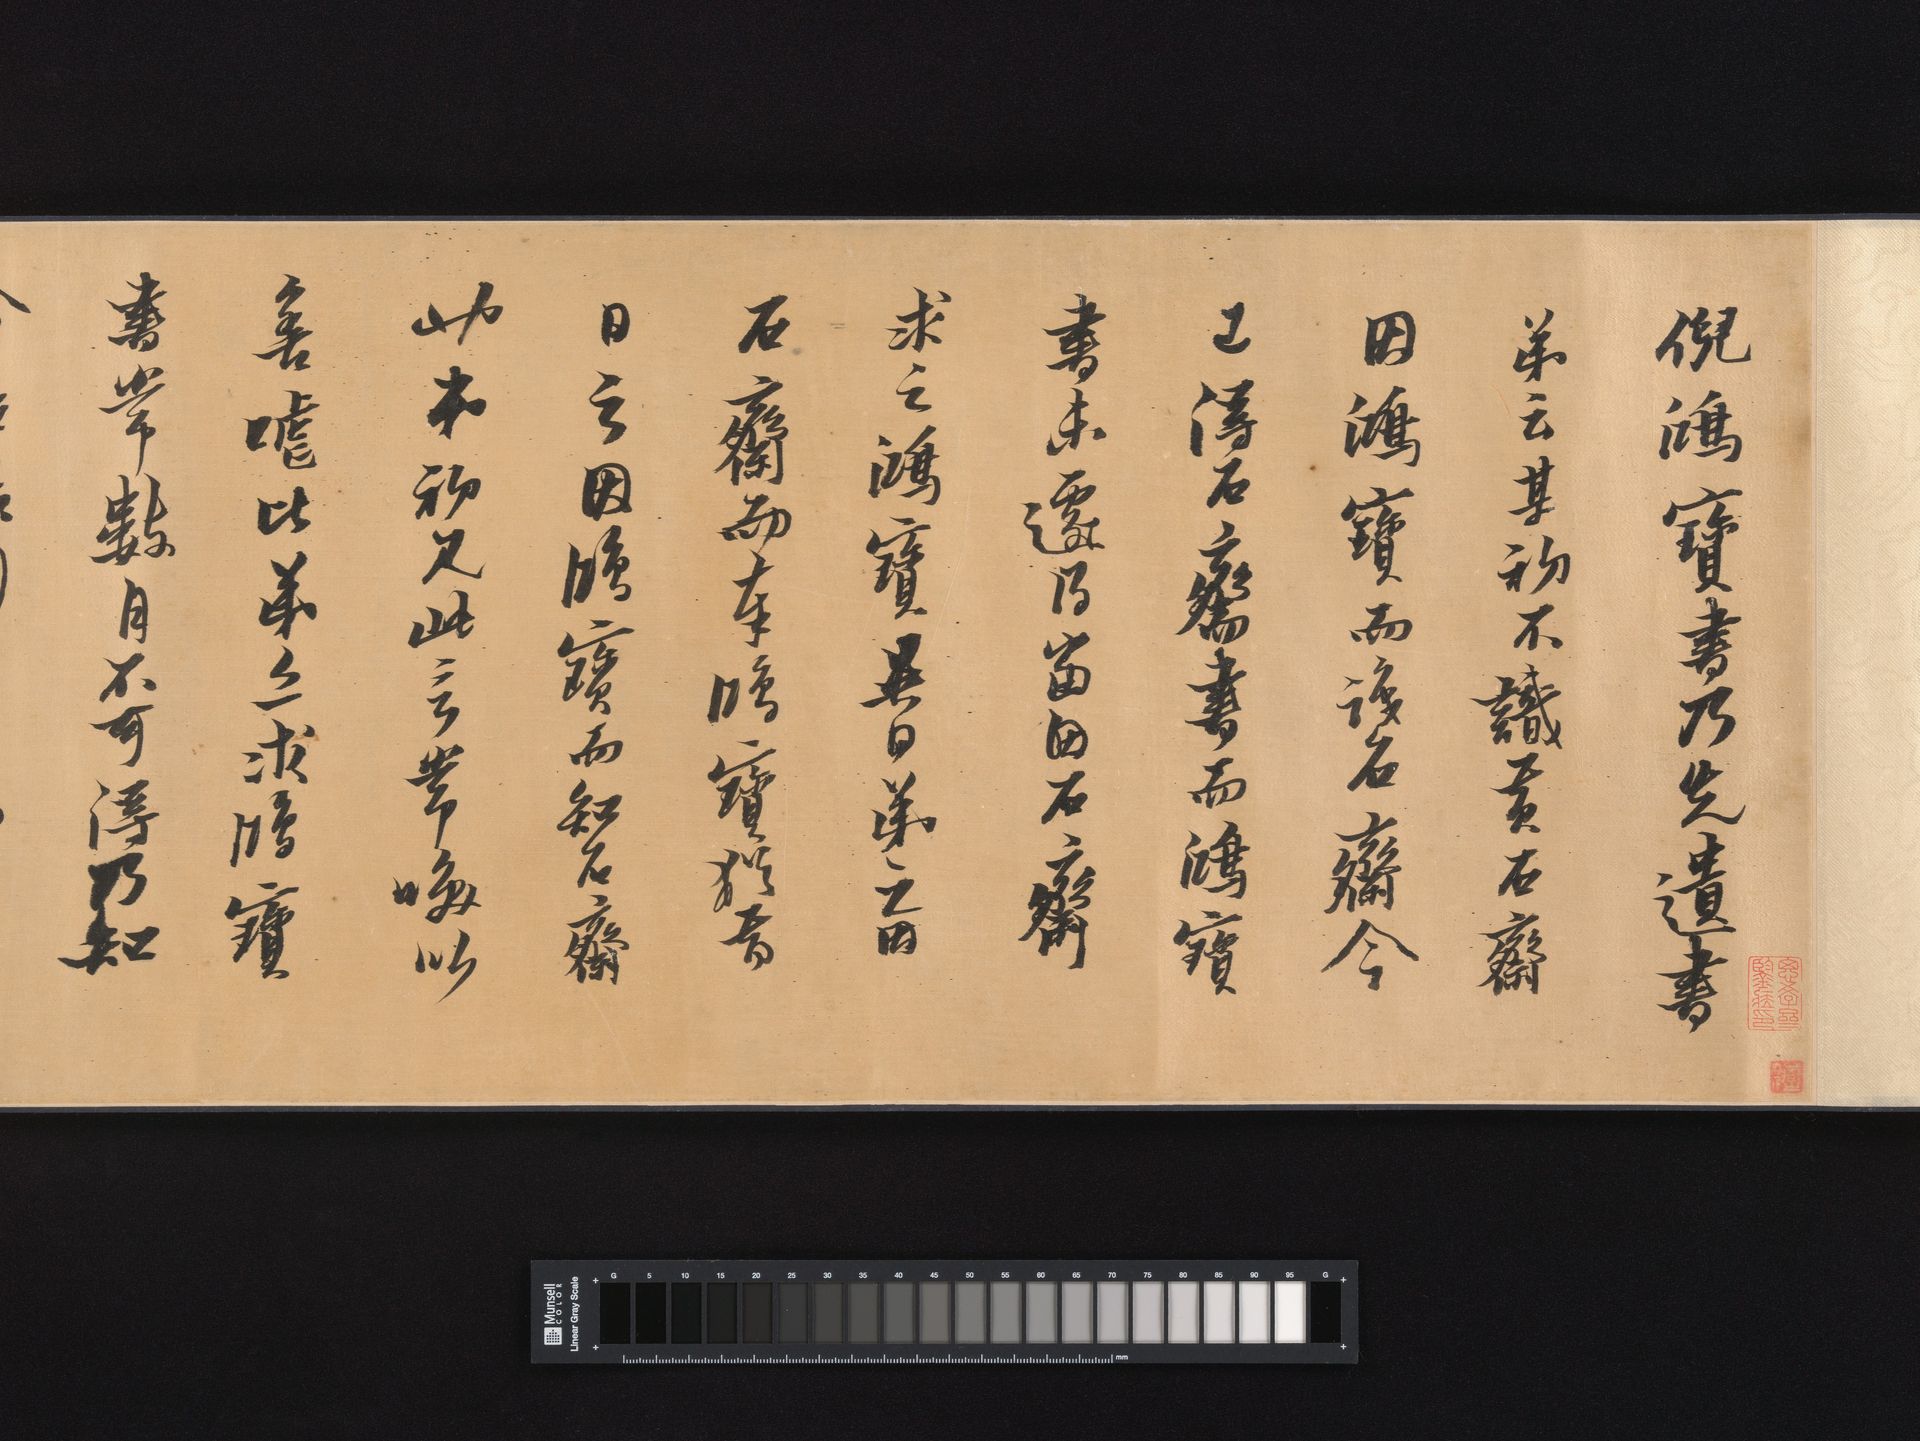 倪鴻寶書乃先遺書
弟云某初不識黃石齋
因鴻寶而識石齋今
已得石齋書而鴻寶
書未遽得當因石齋
求之鴻寶異日弟云因
石齋而奉鴻寶猶昔
日云因鴻寶而知石齋
也弟初見此言常喚以
善噱比弟亦求鴻寶
書常數月不可得乃知
Munsell
COLOR
Linear Gray Scale
G 5 10 15 20 25 30 35 40 45 50 55 60 65 70 75 80 85 90 95 G
mm